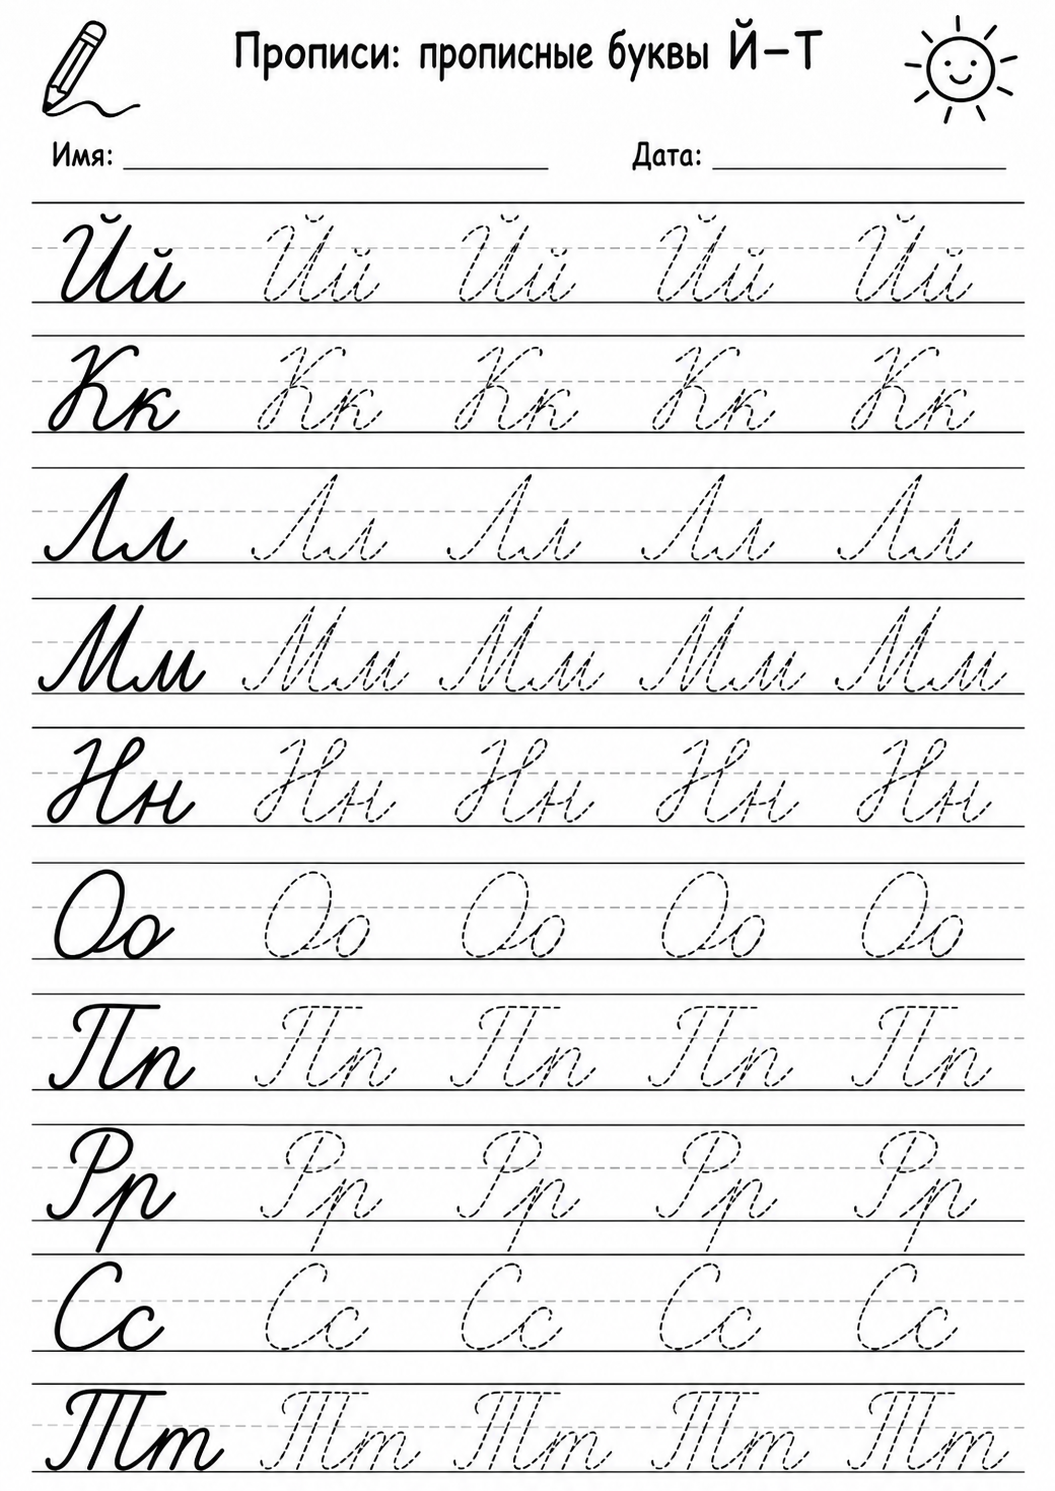 Прописи: прописные буквы Й–Т
Имя: Дата:
Йй Йй Йй Йй Йй
Кк Кк Кк Кк Кк
Лл Лл Лл Лл Лл
Мм Мм Мм Мм Мм
Нн Нн Нн Нн Нн
Оо Оо Оо Оо Оо
Пп Пп Пп Пп Пп
Рр Рр Рр Рр Рр
Сс Сс Сс Сс Сс
Тт Тт Тт Тт Тт